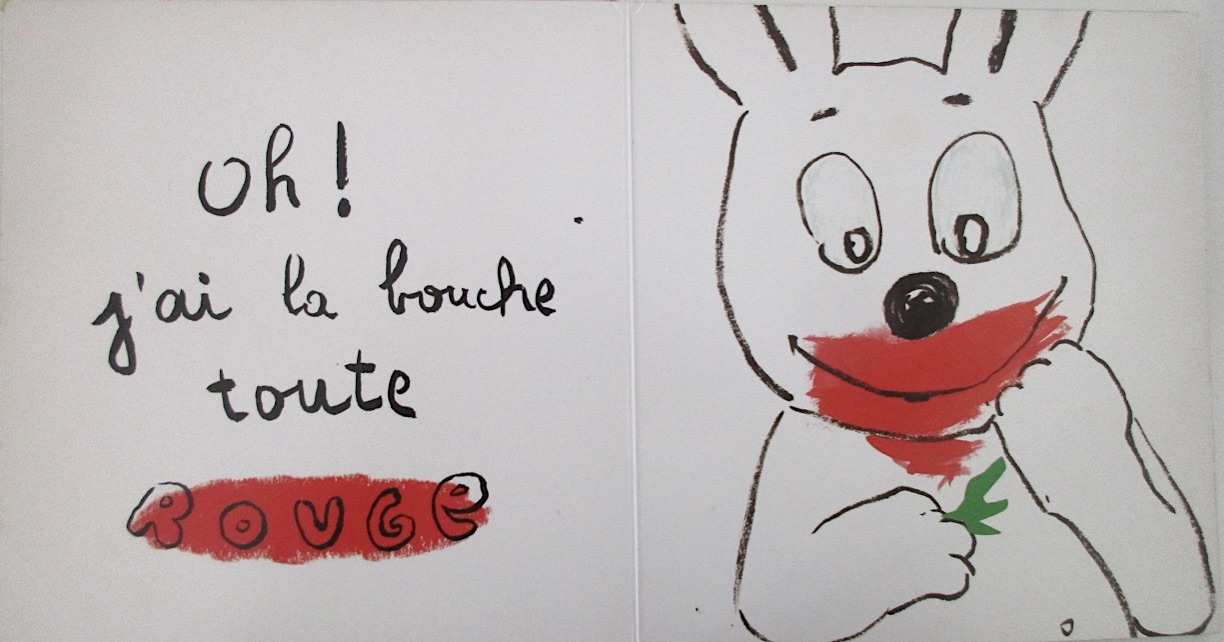 Oh !
j'ai la bouche
toute
ROUGE